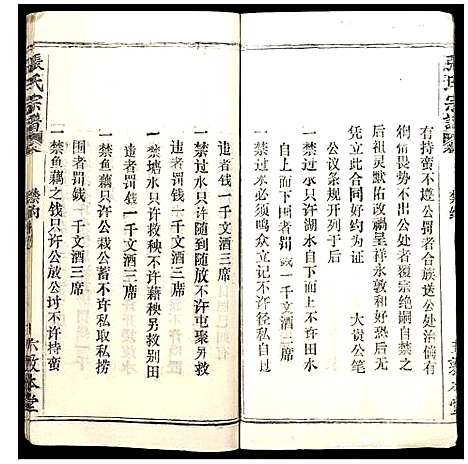 張氏宗譜
禁約
有持蛮不遵公罚者合族送公处治倘有
徇情畏势不出公处者覆宗绝嗣自禁之
后祖灵默佑改禍呈祥永敦和好恐后无
凭立此合同好约为证 大贵公笔
公议条规开列于后
一禁过水只许湖水自下而上不许田水
自上而下围者罰錢一千文酒三席
一禁过水必须鸣众立记不许徑私自过
一禁过水只许随到随放不许屯聚别田
违者罚钱一千文酒三席
一禁塘水只许救秧不许藉秧另救别田
违者罚钱一千文酒三席
一禁鱼藕只许公栽公蓄不许私取私捞
围者罰钱一千文酒三席
一禁鱼藕之钱只许公放公讨不许持蛮
張氏宗譜
禁約
敦本堂